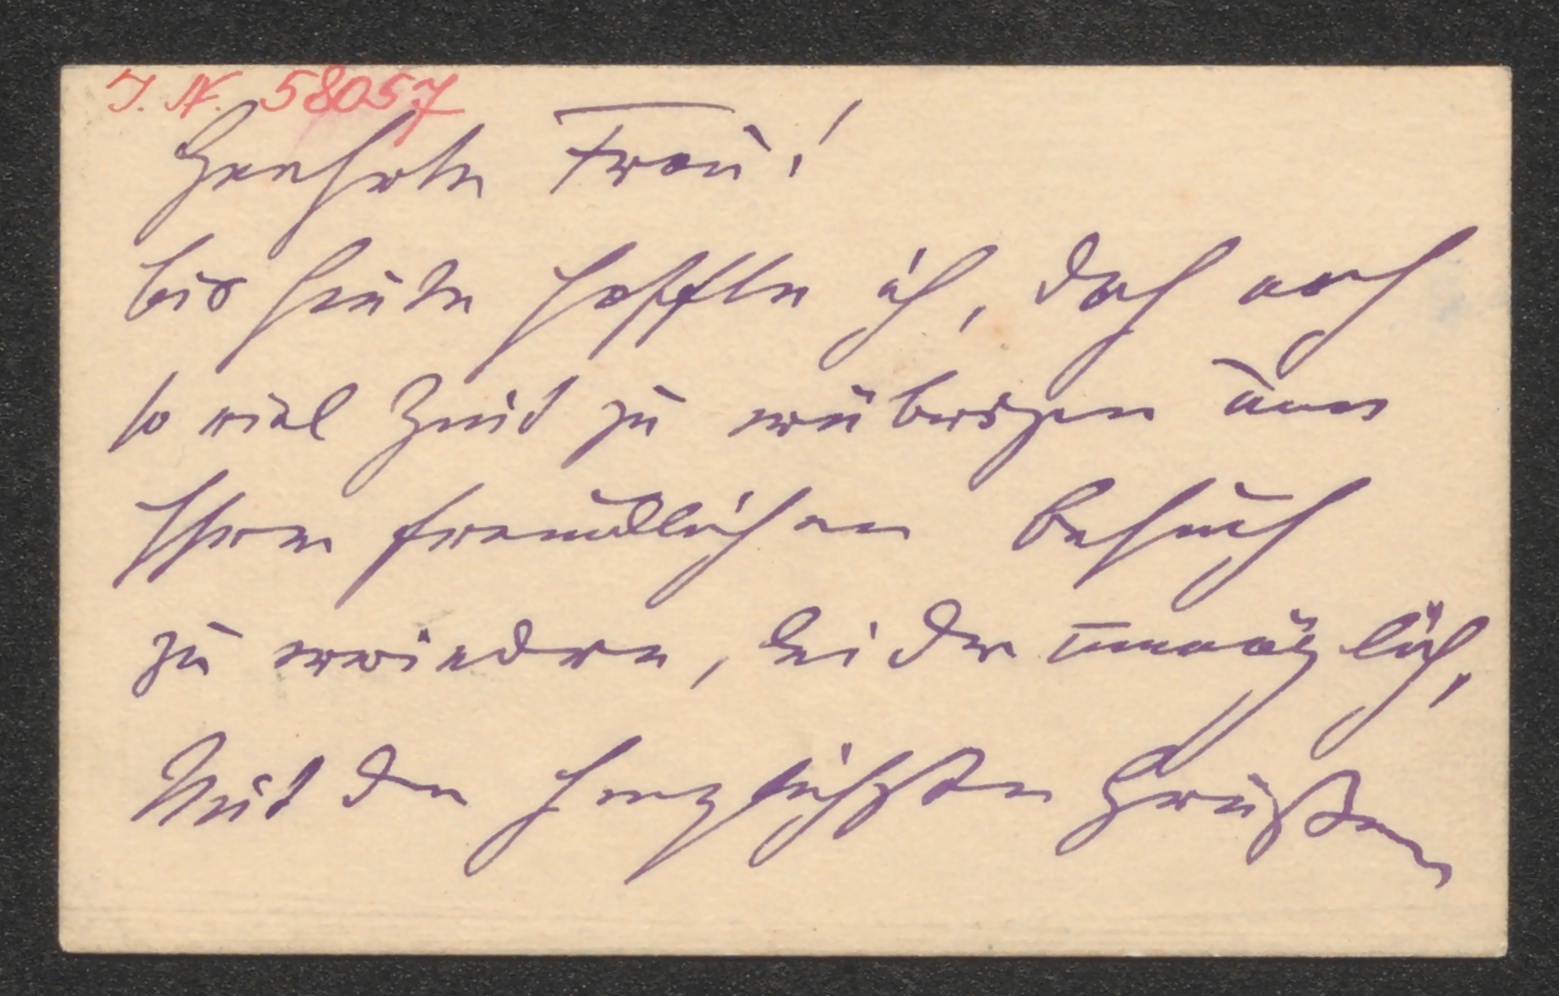 I. N. 58057
Geehrte Frau!
bis heute hoffte ich, doch noch
so viel Zeit zu erübrigen um
Ihren freundlichen Besuch
zu erwiedern, leider unmöglich,
Mit den herzlichsten Grüßen